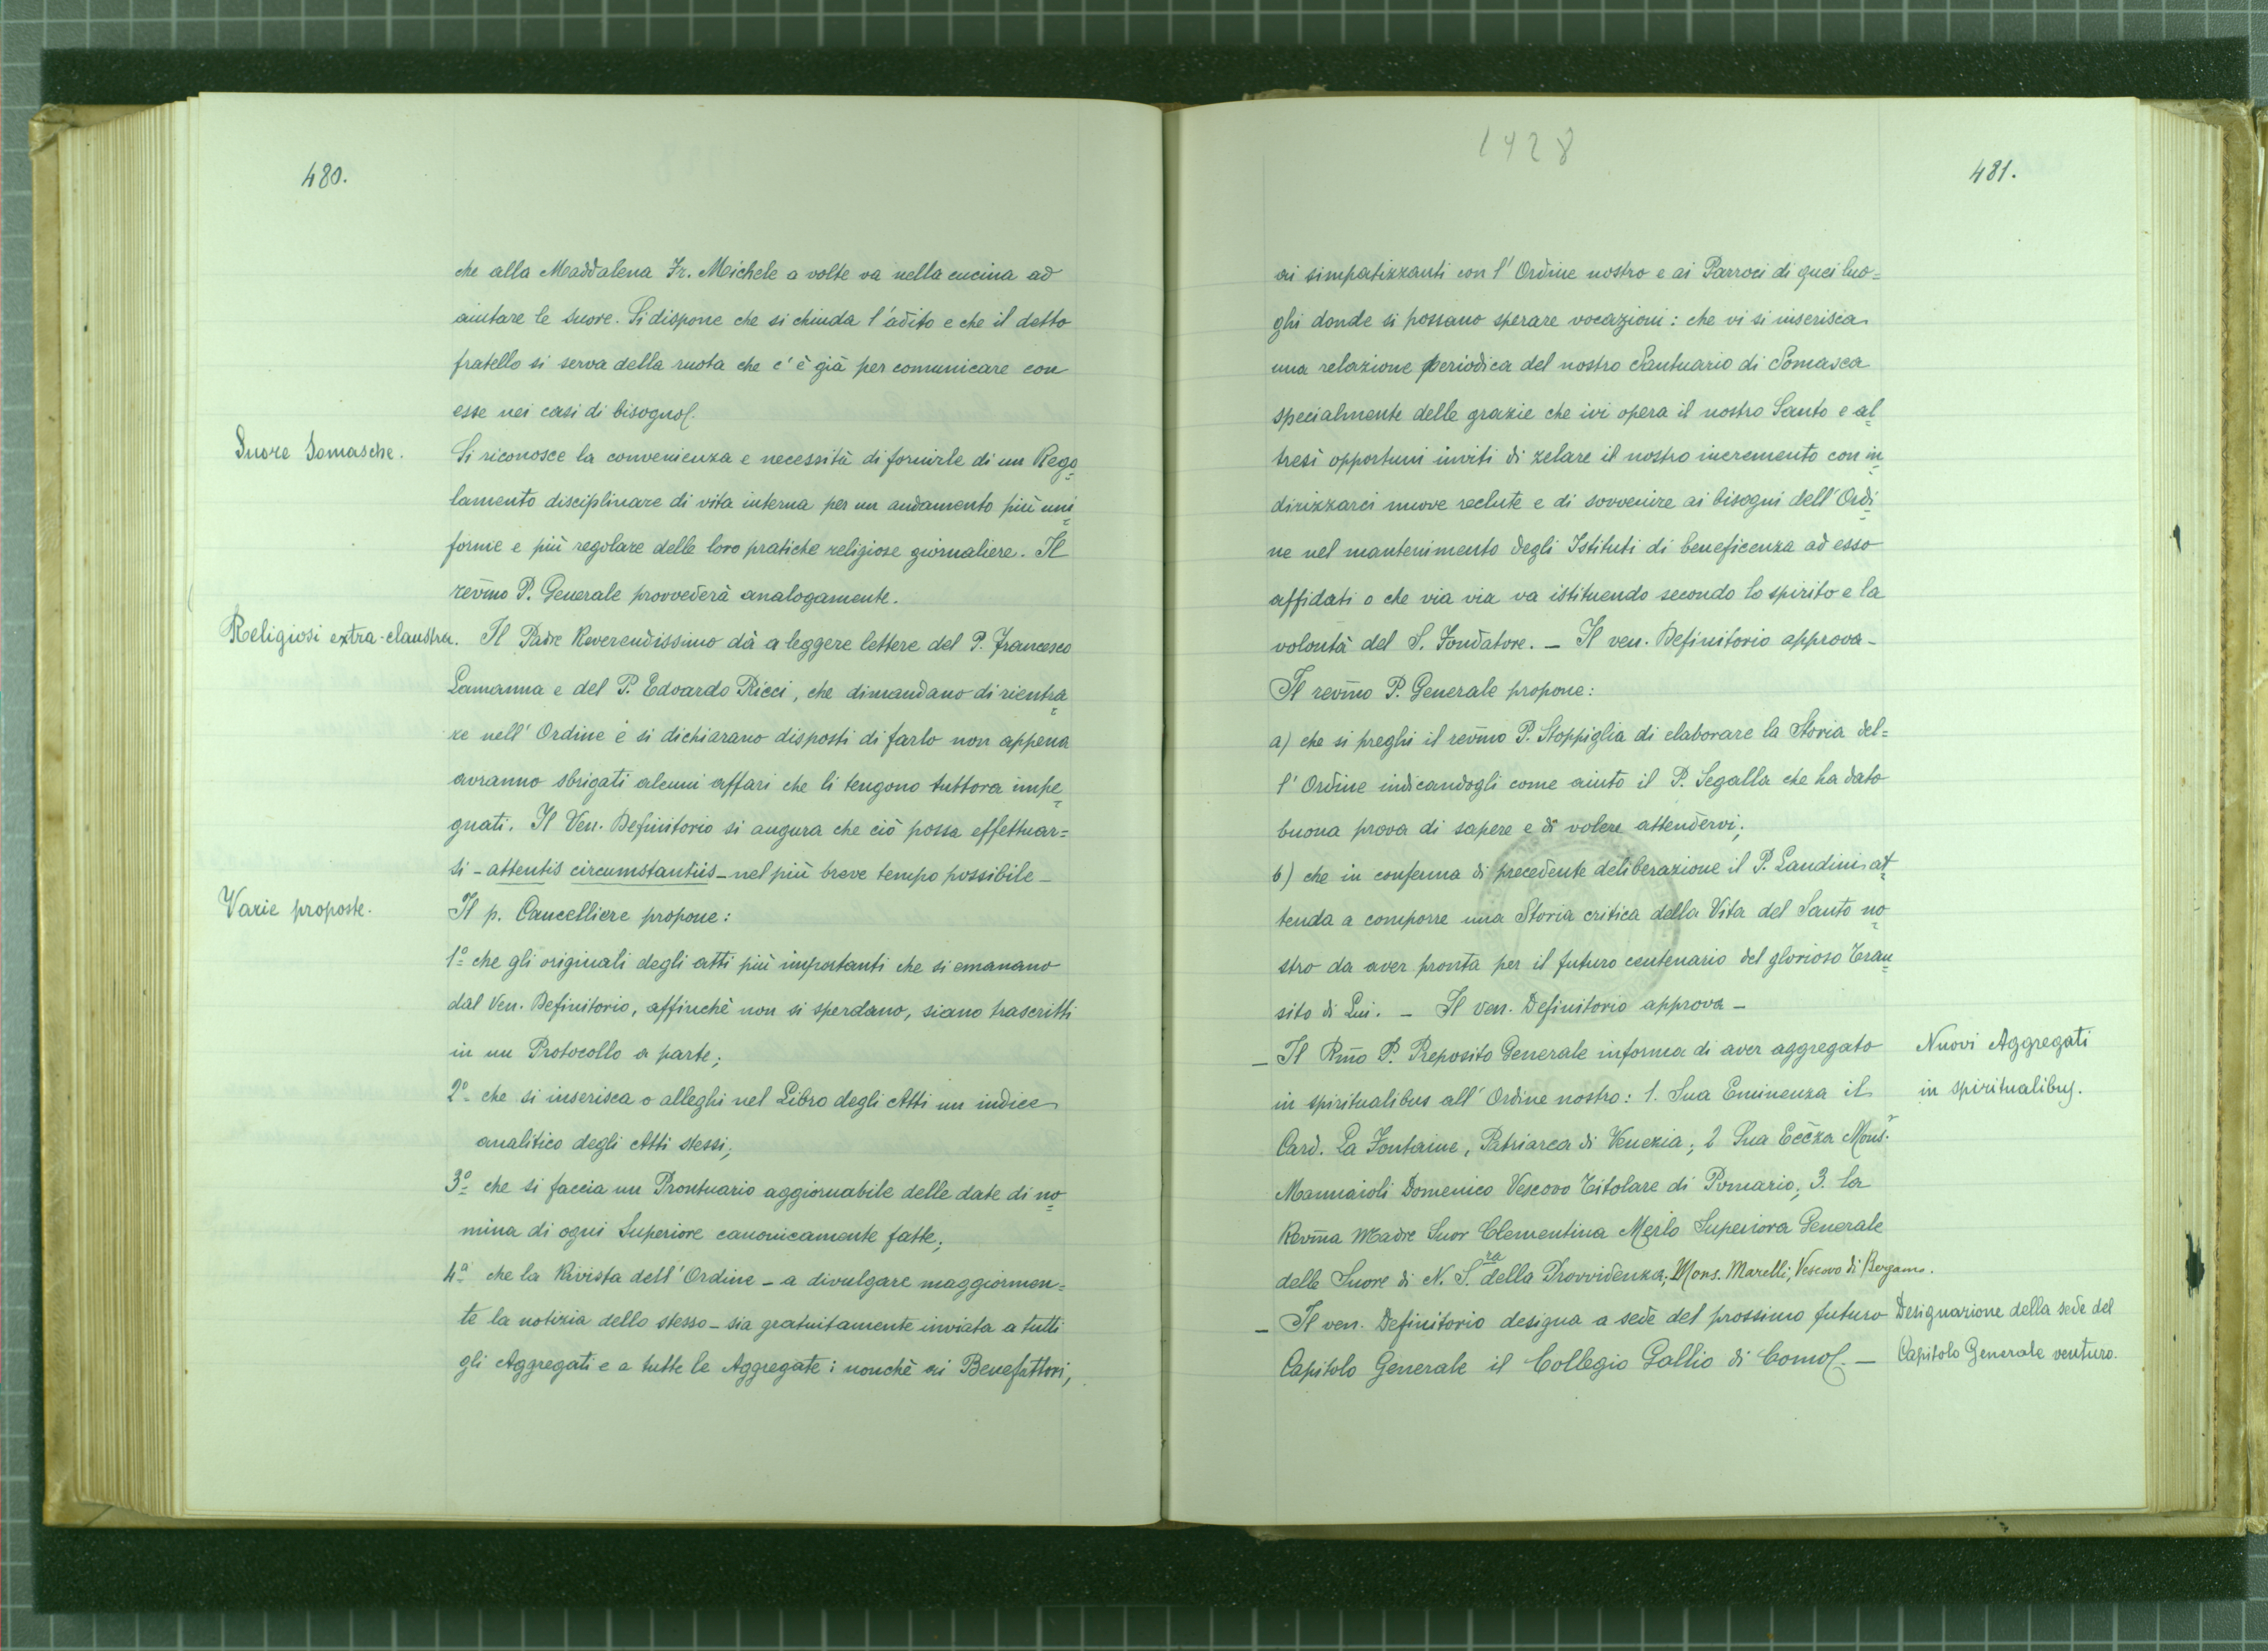 480.
che alla Maddalena Fr. Michele a volte va nella cucina ad
aiutare le Suore. Si dispone che si chiuda l'adito e che il detto
fratello si serva della ruota che c'è già per comunicare con
esse nei casi di bisogno.
Suore Somasche.
Si riconosce la convenienza e necessità di fornirle di un Rego=
lamento disciplinare di vita interna per un andamento più uni=
forme e più regolare delle loro pratiche religiose giornaliere. Il
revmo P. Generale provvederà analogamente.
Religiosi extra-claustra.
Il Padre Reverendissimo dà a leggere lettere del P. Francesco
Lamanna e del P. Edoardo Ricci, che dimandano di rientra=
re nell'Ordine e si dichiarano disposti di farlo non appena
avranno sbrigati alcuni affari che li tengono tuttora impe=
gnati. Il Ven. Definitorio si augura che ciò possa effettuar=
si - attentis circumstantiis - nel più breve tempo possibile -
Varie proposte.
Il p. Cancelliere propone:
1º che gli originali degli atti più importanti che si emanano
dal Ven. Definitorio, affinchè non si sperdano, siano trascritti
in un Protocollo a parte;
2º che si inserisca o alleghi nel Libro degli Atti un indice
analitico degli Atti stessi;
3º che si faccia un Prontuario aggiornabile delle date di no=
mina di ogni Superiore canonicamente fatte;
4º che la Rivista dell'Ordine - a divulgare maggiormen=
te la notizia dello stesso - sia gratuitamente inviata a tutti
gli Aggregati e a tutte le Aggregate: nonchè ai Benefattori,
1928
481.
ai simpatizzanti con l'Ordine nostro e ai Parroci di quei luo=
ghi donde si possano sperare vocazioni: che vi si inserisca
una relazione periodica del nostro Santuario di Somasca
specialmente delle grazie che ivi opera il nostro Santo e al=
tresì opportuni inviti di zelare il nostro incremento con in=
dirizzarci nuove reclute e di sovvenire ai bisogni dell'Ordi=
ne nel mantenimento degli Istituti di beneficenza ad esso
affidati o che via via va istituendo secondo lo spirito e la
volontà del S. Fondatore. - Il ven. Definitorio approva -
Il revmo P. Generale propone:
a) che si preghi il revmo P. Stoppiglia di elaborare la Storia del=
l'Ordine indicandogli come aiuto il P. Segalla che ha dato
buona prova di sapere e di volere attendervi;
b) che in conferma di precedente deliberazione il P. Landini at=
tenda a comporre una Storia critica della Vita del Santo no=
stro da aver pronta per il futuro centenario del glorioso Tran=
sito di Lui. - Il ven. Definitorio approva -
- Il Rmo P. Preposito Generale informa di aver aggregato
in spiritualibus all'Ordine nostro: 1. Sua Eminenza il
Card. La Fontaine, Patriarca di Venezia; 2 Sua Eccza Monsr.
Mannaioli Domenico Vescovo Titolare di Pomario; 3. la
Revma Madre Suor Clementina Merlo Superiora Generale
delle Suore di N. S.ra della Provvidenza; Mons. Marelli, Vescovo di Bergamo.
- Il ven. Definitorio designa a sede del prossimo futuro
Capitolo Generale il Collegio Gallio di Como. -
Nuovi Aggregati
in spiritualibus.
Designazione della sede del
Capitolo Generale venturo.